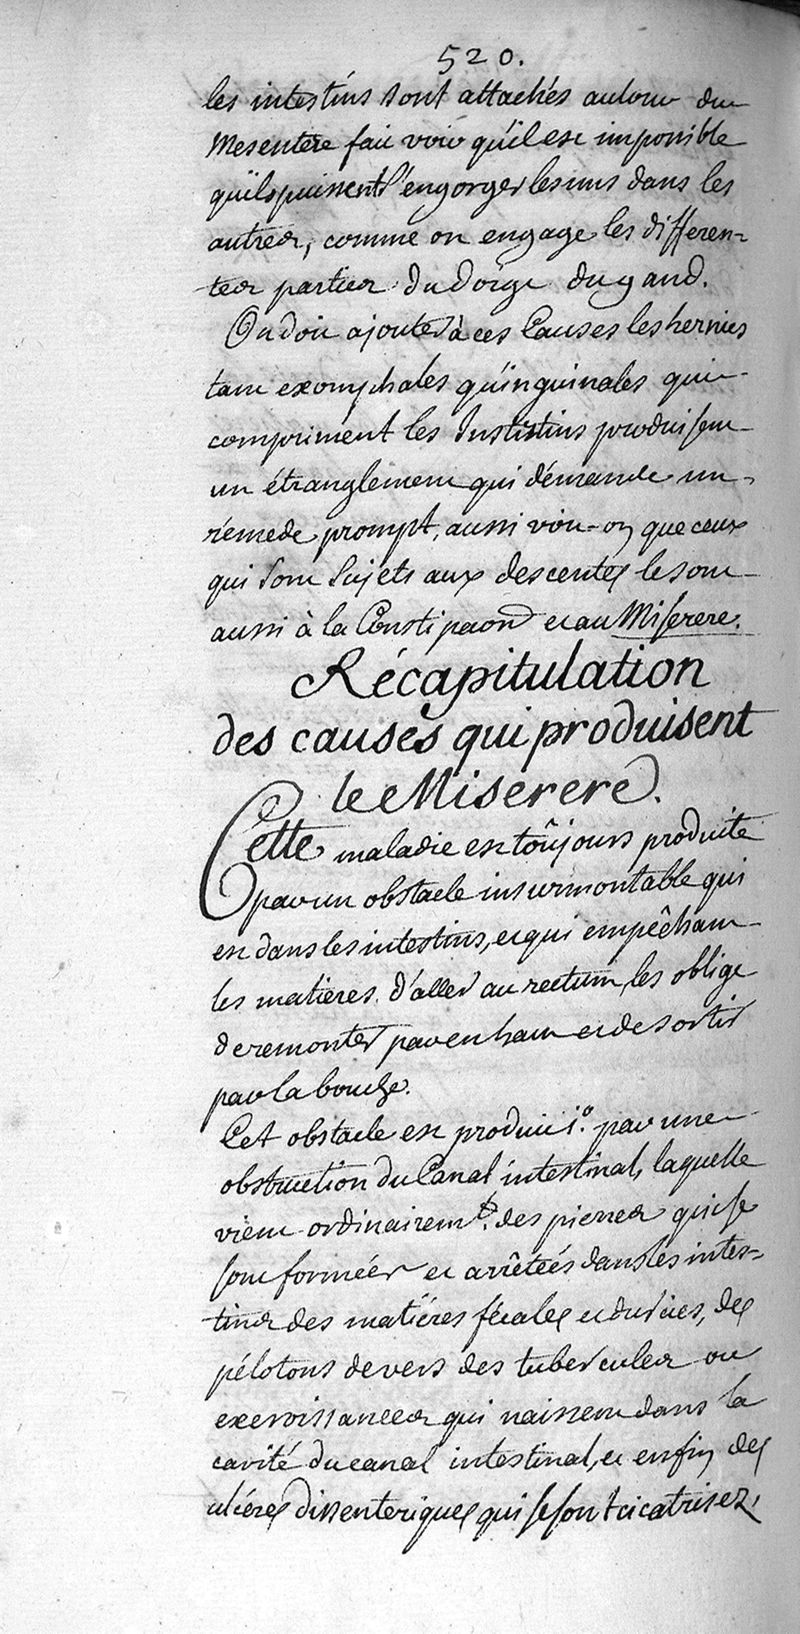 520.
les intestins sont attachés autour du
Mesentere fait voir qu'il est impossible
qu'ils puissent s'engorger les uns dans les
autres, comme on engage les differen=
tes parties du doigt du gand.
On doit ajouter à ces Causes les hernies
tant exomphales qu'inguinales qui
compriment les Instistins produisent
un étranglement qui démande un
rémede prompt, aussi voit-on que ceux
qui sont sujets aux descentes le sont
aussi à la Constipaon et au Miserere.
Récapitulation
des causes qui produisent
le Miserere.
Cette maladie est toûjours produite
par un obstacle insurmontable qui
est dans les intestins, et qui empêchant
les matieres d'aller au rectum, les oblige
de remonter par en haut et de sortir
par la bouche.
Cet obstacle est produit 1.º par une
obstruction du Canal intestinal, laquelle
vient ordinairemt. des pierres qui se
sont formées et arrêtées dans les intes=
tins des matiéres fécales endurcies, des
pélotons de vers des tubercules ou
excroissances qui naissent dans la
cavité du canal intestinal, et enfin des
ulcéres dissenteriques qui se sont cicatrisez,